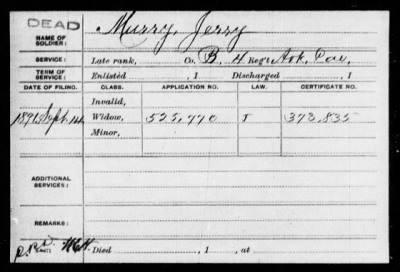 DEAD
NAME OF SOLDIER: Murry, Jerry
SERVICE: Late rank, Co. B, 4 Reg't Ark. Cav,
TERM OF SERVICE: Enlisted , 1 Discharged , 1
DATE OF FILING. CLASS. APPLICATION NO. LAW. CERTIFICATE NO.
Invalid,
1891 Sept. Widow, 525,770 J 373,835
Minor,
ADDITIONAL SERVICES:
REMARKS:
Died , 1 , at